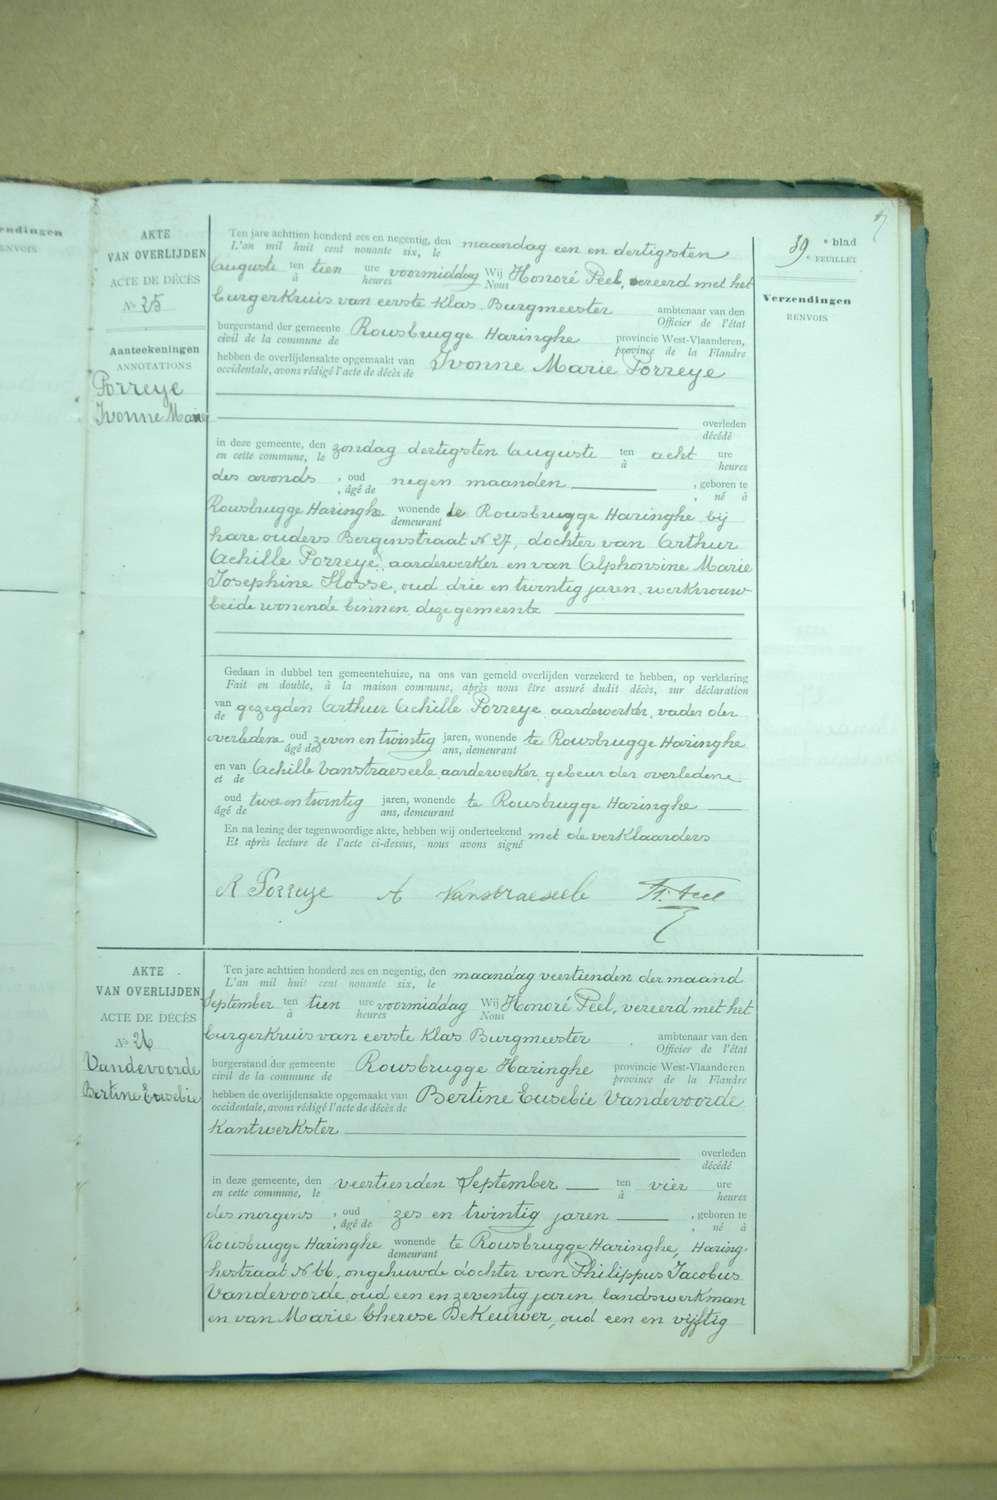 endingen
ENVOIS
AKTE
VAN OVERLIJDEN
ACTE DE DÉCÈS
No 25
Aanteekeningen
ANNOTATIONS
Porreye
Ivonne Marie
Ten jare achttien honderd zes en negentig, den maandag een en dertigsten
L'an mil huit cent nonante six, le
Auguste ten tien ure voormiddag Wij Honoré Peel, vereerd met het
à heures Nous
burgerkruis van eerste klas Burgmeester ambtenaar van den
Officier de l'état
burgerstand der gemeente Rousbrugge Haringhe provincie West-Vlaanderen,
civil de la commune de province de la Flandre
hebben de overlijdensakte opgemaakt van Ivonne Marie Porreye
occidentale, avons rédigé l'acte de décès de
overleden
décédé
in deze gemeente, den zondag dertigsten Auguste ten acht ure
en cette commune, le à heures
des avonds , oud negen maanden , geboren te
, âgé de , né à
Rousbrugge Haringhe wonende te Rousbrugge Haringhe bij
demeurant
hare ouders Bergenstraat N 27, dochter van Arthur
Achille Porreye, aardewerker en van Alphonsine Marie
Josephine Hosse, oud drie en twintig jaren, werkvrouw
beide wonende binnen deze gemeente
Gedaan in dubbel ten gemeentehuize, na ons van gemeld overlijden verzekerd te hebben, op verklaring
Fait en double, à la maison commune, après nous être assuré dudit décès, sur déclaration
van gezegden Arthur Achille Porreye aardewerker, vader der
de
overledene oud zeven en twintig jaren, wonende te Rousbrugge Haringhe
âgé de ans, demeurant
en van Achille Vanstraeseele aardewerker gebeur der overledene
et de
oud twee en twintig jaren, wonende te Rousbrugge Haringhe
âgé de ans, demeurant
En na lezing der tegenwoordige akte, hebben wij onderteekend met de verklaarders
Et après lecture de l'acte ci-dessus, nous avons signé
A Porreye A Vanstraeseele H. Peel
89 e blad
e FEUILLET
Verzendingen
RENVOIS
AKTE
VAN OVERLIJDEN
ACTE DE DÉCÈS
No 26
Vandevoorde
Bertine Eusebie
Ten jare achttien honderd zes en negentig, den maandag veertienden der maand
L'an mil huit cent nonante six, le
September ten tien ure voormiddag Wij Honoré Peel, vereerd met het
à heures Nous
burgerkruis van eerste klas Burgmeester ambtenaar van den
Officier de l'état
burgerstand der gemeente Rousbrugge Haringhe provincie West-Vlaanderen
civil de la commune de province de la Flandre
hebben de overlijdensakte opgemaakt van Bertine Eusebie Vandevoorde
occidentale, avons rédigé l'acte de décès de
Kantwerkster
overleden
décédé
in deze gemeente, den veertienden September ten vier ure
en cette commune, le à heures
des morgens , oud zes en twintig jaren , geboren te
, âgé de , né à
Rousbrugge Haringhe wonende te Rousbrugge Haringhe, Haring-
demeurant
hestraat N 66, ongehuwde dochter van Philippus Jacobus
Vandevoorde, oud een en zeventig jaren landswerkman
en van Marie Therese DeKeuwer, oud een en vijftig